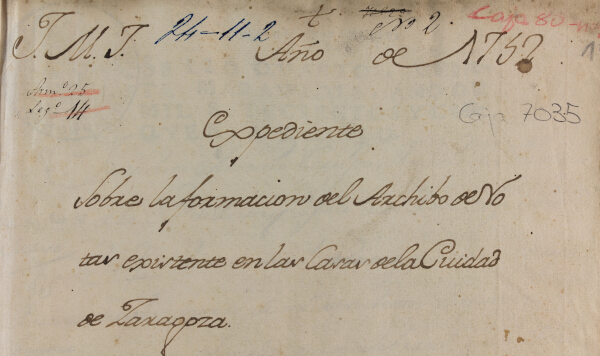 J. M. J. 24-11-2 Nº 2. Caja 80
Año de 1752
1
Armº 25
Legº 14
Caja 7035
Expediente
Sobre la formacion del Archibo de No
tas existente en las Casas de la Cuidad
de Zaragoza.